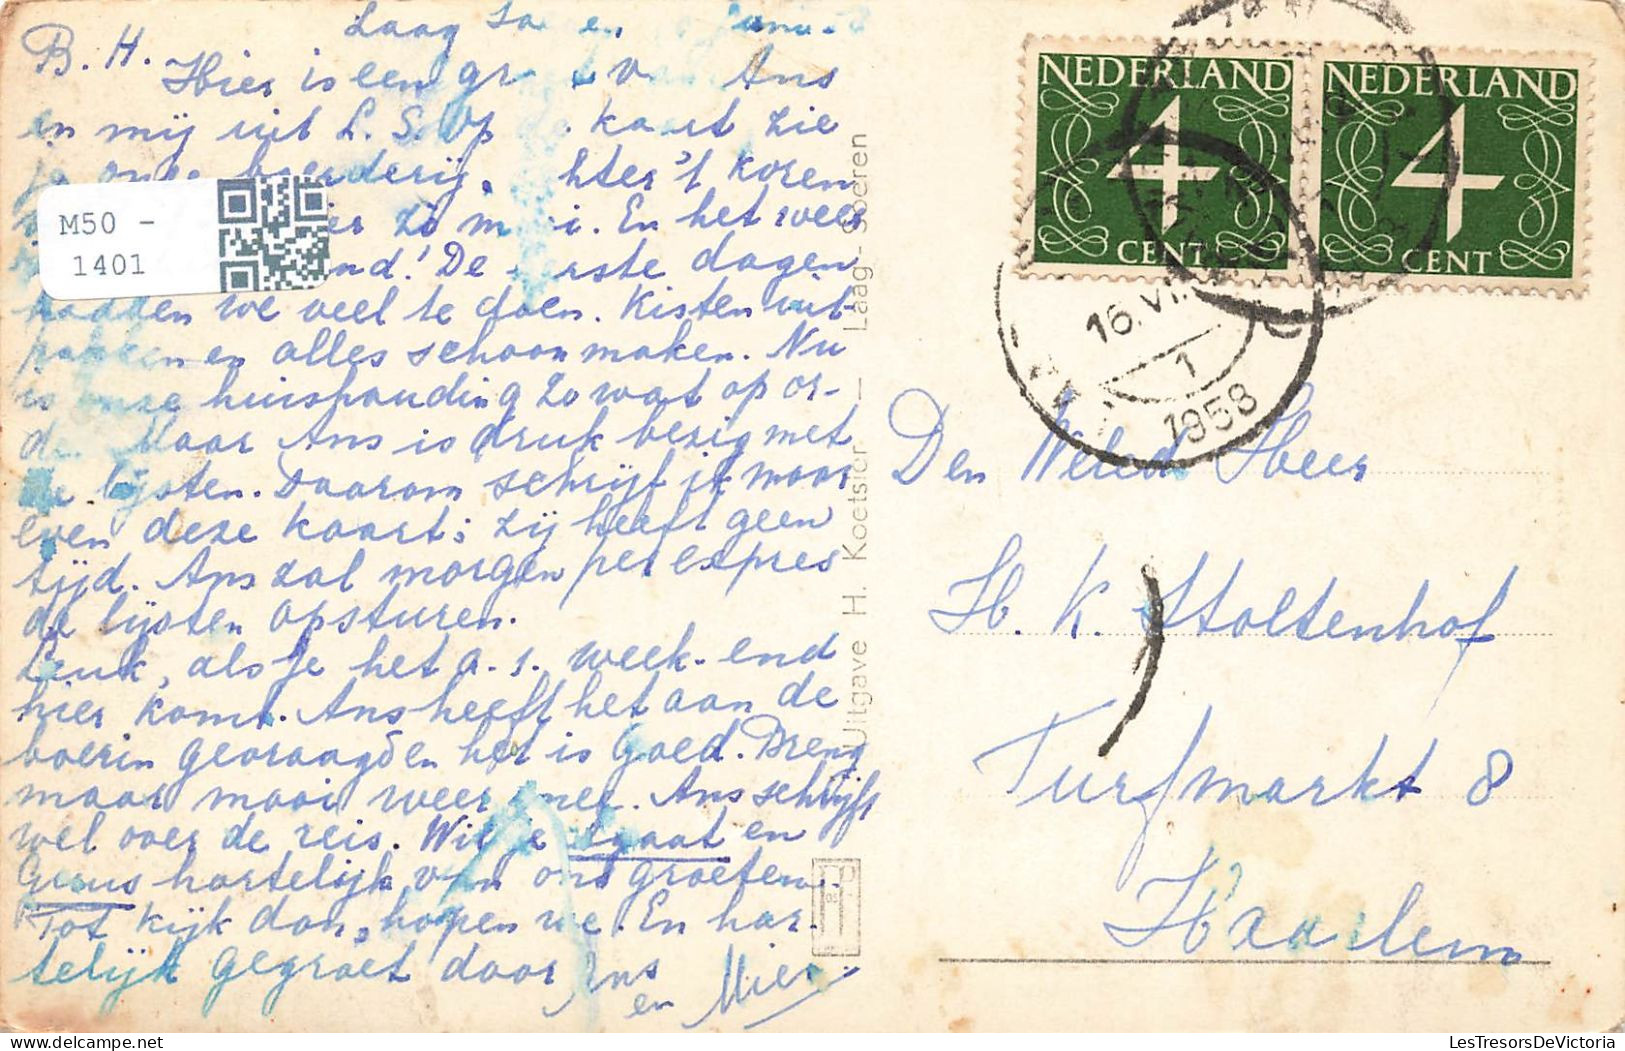 Laag
B. H.
Hier is een Ans
en mij uit L. S. Op kaart zie
je onze boerderij. 't koren
zo En het weer
De eerste dagen
hadden we veel te doen. Kisten uit-
pakken en alles schoonmaken. Nu
is onze huishouding zo wat op or-
de. Maar Ans is druk bezig met
de lijsten. Daarom schrijf ik maar
even deze kaart; zij heeft geen
tijd. Ans zal morgen per expres
de lijsten opsturen.
Leuk, als je het a.s. week-end
hier komt. Ans heeft het aan de
boerin gevraagd en het is goed. Breng
maar mooi weer mee. Ans schrijft
wel over de reis. Wil je en
Guus hartelijk van ons groeten.
Tot kijk dan, hopen we. En har-
telijk gegroet door Ans
en Mies
M50 -
1401
Uitgave H. Koetsier — Laag-Soeren
NEDERLAND
4
CENT
NEDERLAND
4
CENT
16.VI.
1
1958
Den Weled. Heer
H. K. Stoltenhof
Turfmarkt 8
Haarlem
www.LesTresorsDeVictoria.com